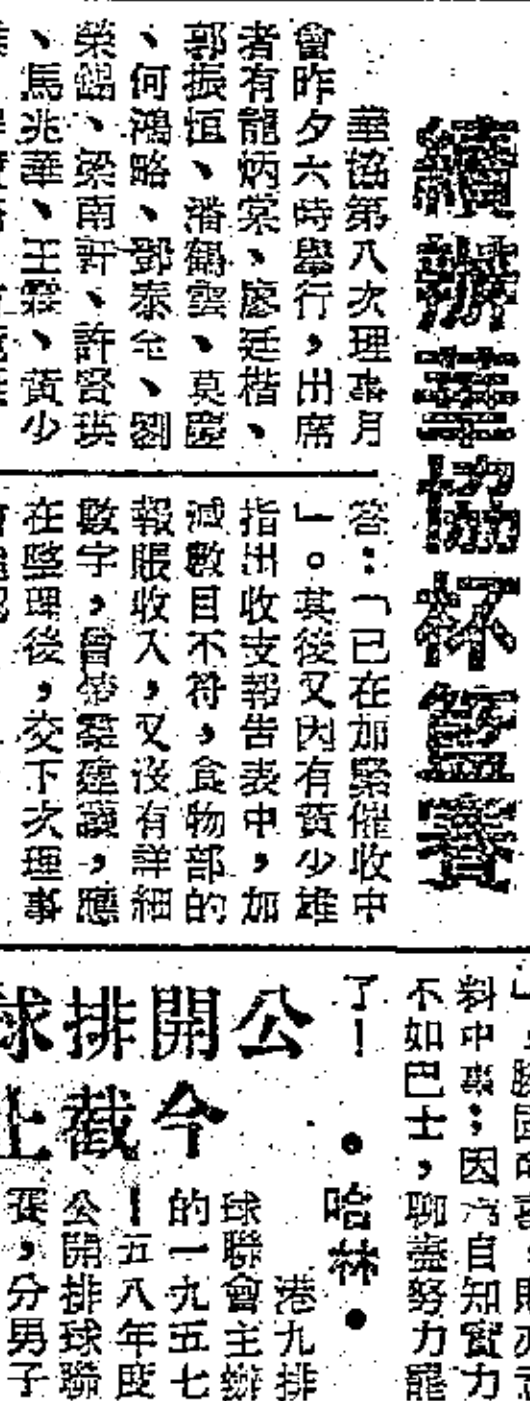 續辦華協杯籃賽
華協第八次理事月
會昨夕六時舉行，出席
者有龍炳棠、廖廷楷、
郭振恒、潘鶴雲、莫慶
、何鴻略、鄧泰全、劉
榮錦、梁南軒、許賢瑛
、馬兆華、王霖、黃少
答：「已在加緊催收中
」。其後又因有黃少雄
指出收支報告表中，加
減數目不符，食物部的
報賬收入，又沒有詳細
數字，曾榮羣建議，應
在整理後，交下次理事
料中事；因
自知實力
不如巴士，聊盡努力罷
了！
•哈林•
公開排球
今截止
港九排
球聯會主辦
的一九五七
—五八年度
公開排球聯
賽，分男子